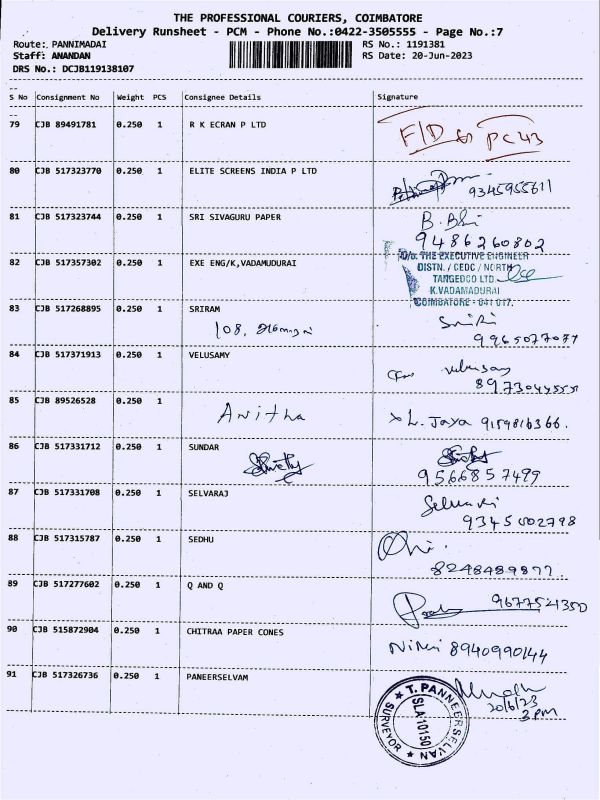 THE PROFESSIONAL COURIERS, COIMBATORE
Delivery Runsheet - PCM - Phone No.:0422-3505555 - Page No.:7
Route: PANNIMADAI RS No.: 1191381
Staff: ANANDAN RS Date: 20-Jun-2023
DRS No.: DCJB119138107
S No Consignment No Weight PCS Consignee Details Signature
79 CJB 89491781 0.250 1 R K ECRAN P LTD F/D to PC 43
80 CJB 517323770 0.250 1 ELITE SCREENS INDIA P LTD 9345955611
81 CJB 517323744 0.250 1 SRI SIVAGURU PAPER B.
9486260802
82 CJB 517357302 0.250 1 EXE ENG/K,VADAMUDURAI O/o. THE EXECUTIVE ENGINEER
DISTN. / CEDC / NORTH
TANGEDCO LTD
K.VADAMADURAI
COIMBATORE - 641 017.
83 CJB 517268895 0.250 1 SRIRAM
108,
9965077077
84 CJB 517371913 0.250 1 VELUSAMY velusamy
85 CJB 89526528 0.250 1 Anitha L. Jaya 9159816366.
86 CJB 517331712 0.250 1 SUNDAR
9566857499
87 CJB 517331708 0.250 1 SELVARAJ
9345002798
88 CJB 517315787 0.250 1 SEDHU
8248489877
89 CJB 517277602 0.250 1 Q AND Q 9677521350
90 CJB 515872904 0.250 1 CHITRAA PAPER CONES 8940990144
91 CJB 517326736 0.250 1 PANEERSELVAM
20/6/23
3 pm
T. PANNEERSELVAN
SLA10150
SURVEYOR